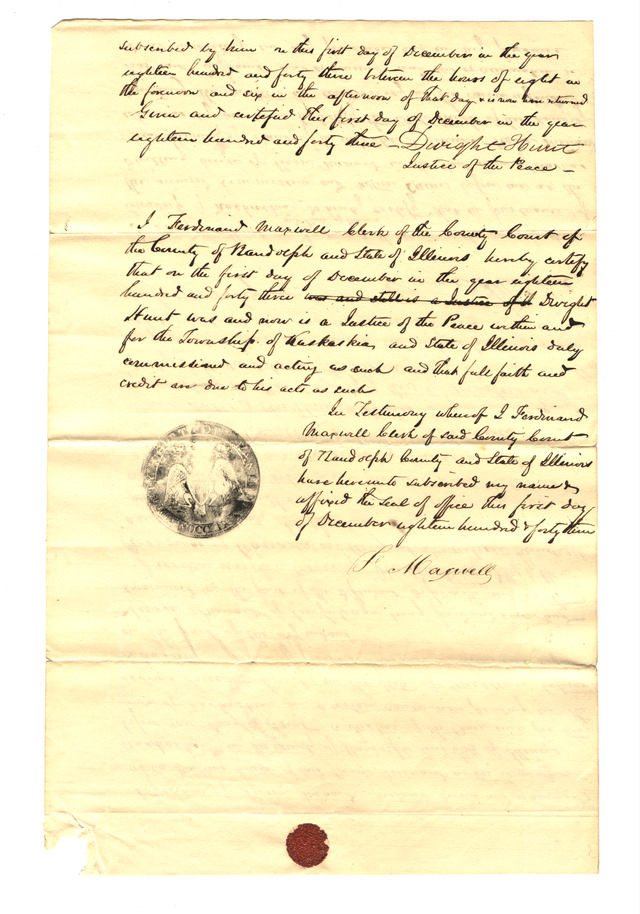 subscribed by him on this first day of December in the year
eighteen hundred and forty three between the hours of eight in
the forenoon and six in the afternoon of that day & is now here returned
Given and certified this first day of December in the year
eighteen hundred and forty three — Dwight Hunt
Justice of the Peace —
I Ferdinand Maxwell Clerk of the County Court of
the County of Randolph and State of Illinois hereby certify
that on the first day of December in the year eighteen
hundred and forty three was and still is a Justice of th Dwight
Hunt was and now is a Justice of the Peace within and
for the Township of Kaskaskia, and State of Illinois duly
commissioned and acting as such and that full faith and
credit are due to his acts as such
In Testimony whereof I Ferdinand
Maxwell Clerk of said County Court
of Randolph County and State of Illinois
have hereunto subscribed my name &
affixed the seal of office this first day
of December eighteen hundred & forty three
F Maxwell